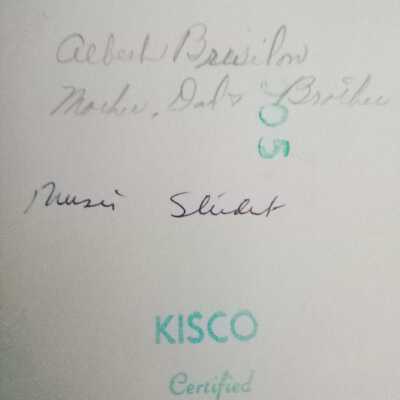 Albert
Mother, Dad & Brother
05
Music Student
KISCO
Certified